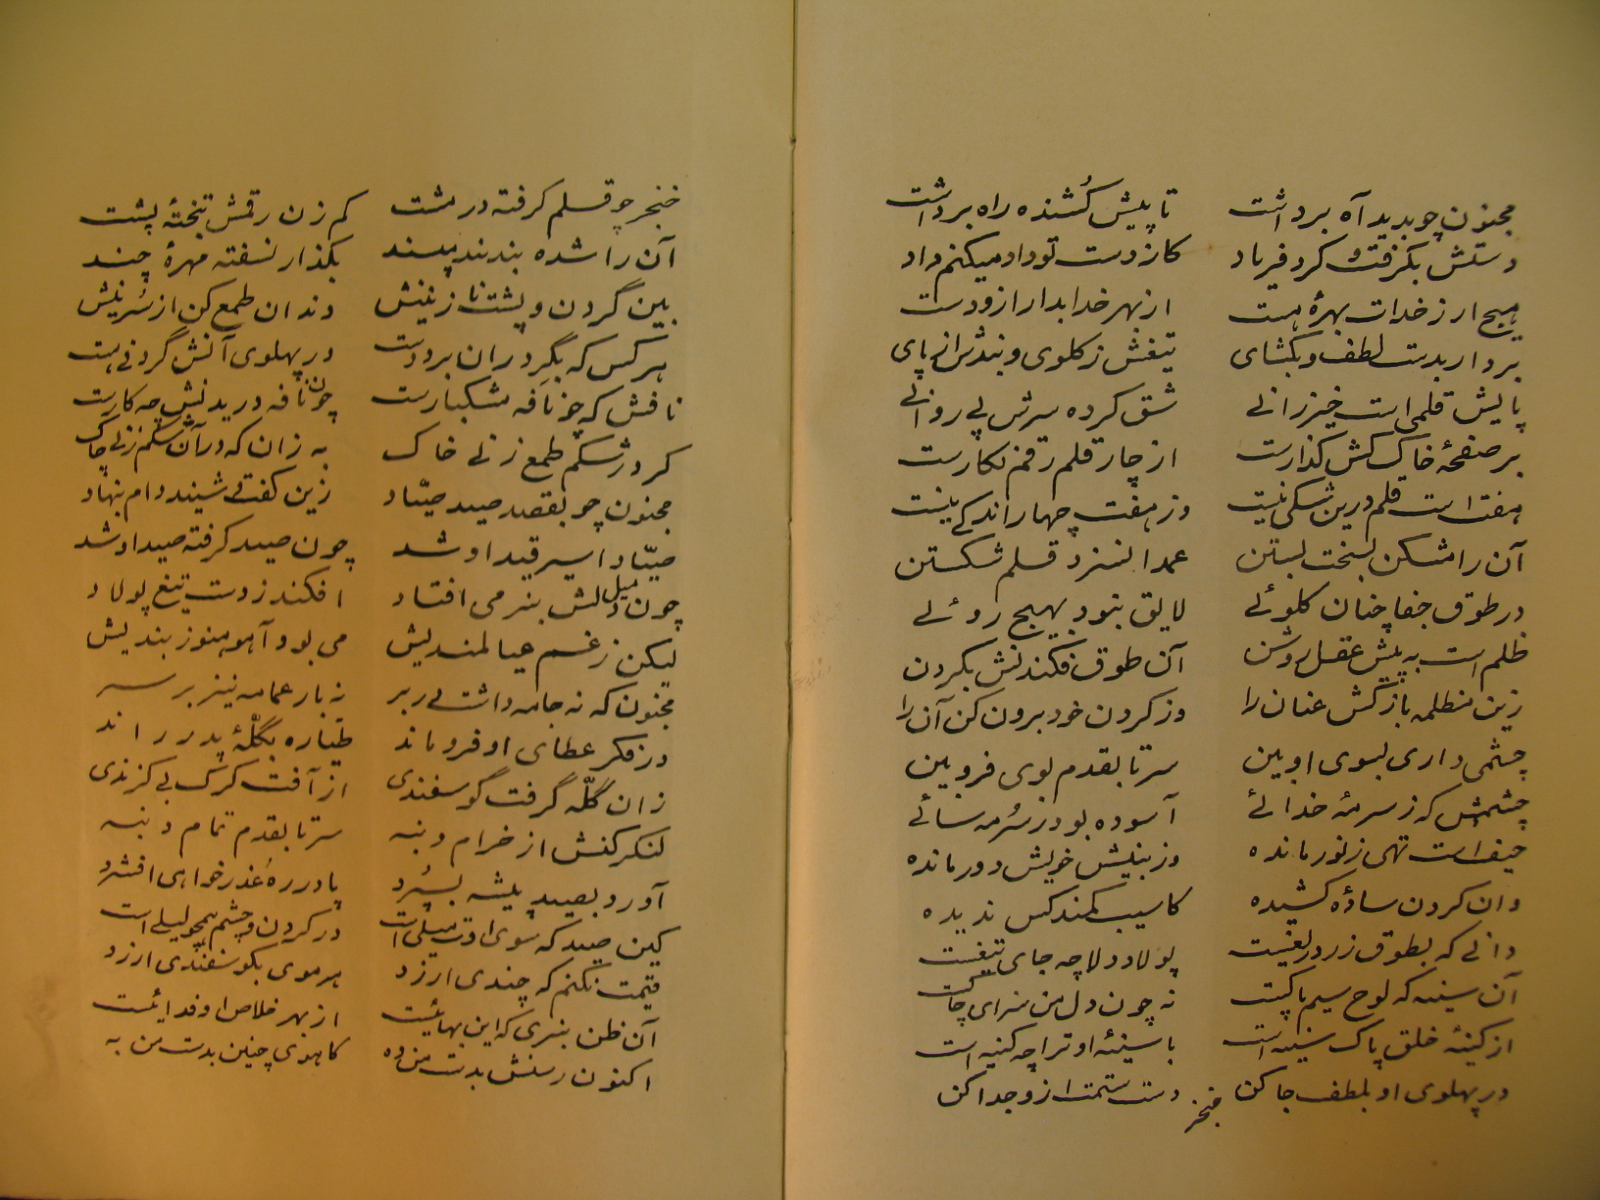 مجنون چو بدید آه برداشت تا پیش کُشنده راه برداشت
دستش بگرفت و کرد فریاد کاز دست تو داد میکنم داد
هیچ ار ز خدات بهرهٔ هست از بهر خدا بدار ازو دست
بردار بدست لطف و بکشای تیغش ز کلوی و بندش از پای
پایش قلمی است خیزرانی شق کرده سرش پی روانی
بر صفحهٔ خاک کش کذارست از چار قلم رقم نکارست
هفت است قلم درین شکی نیست وز هفت چهار اندکی نیست
آن را مشکن بسخت بستن عمدا نسزد قلم شکستن
در طوق جفا چنان کلوئی لایق نبود بهیچ روئی
ظلم است به پیش عقل روشن آن طوق فکندنش بکردن
زین مظلمه باز کش عنان را وز کردن خود برون کن آن را
چشمی داری بسوی او بین سر تا بقدم بوی فرو بین
چشمش که ز سرمهٔ خدائی آسوده بود ز سُرمه سائی
حیف است تهی ز نور مانده وز بینش خویش دور مانده
وان کردن ساده کشیده کاسیب کمند کس ندیده
دانی که بطوق زر دریغست پولاد دلا چه جای تیغست
آن سینه که لوح سیم پاکست نه چون دل من سزای چاکست
از کینهٔ خلق پاک سینه است با سینهٔ او ترا چه کینه است
در پهلوی او بلطف جا کن دست ستمت ازو جدا کن
خنجر
خنجر چو قلم کرفته در مشت کم زن رقمش بتختهٔ پشت
آن را شده بند بند مپسند بکذار نسفته مهرهٔ چند
بین گردن و پشت نازنینش دندان طمع کن از سُرینش
هر کس که بگِرد ران برد دست در پهلوی آنش گردنی هست
نافش که چو نافه مشکبارست چون نافه دریدنش چه کارست
کرد در شکم طمع زنی خاک به زان که در آن شکم زنی چاک
مجنون چو بقصد صید صیّاد زین کفت شنید دام بنهاد
صیّاد اسیر قید او شد چون صید کرفته صید او شد
چون میل دلش بنرمی افتاد افکند ز دست تیغ پولاد
لیکن ز غم عیالمندیش می بود آهو هنوز بندیش
مجنون که نه جامه داشت در بر نه بار عمامه نیز بر سر
در فکر عطای او فرو ماند طیّاره بگلّهٔ پدر راند
زان گلّه گرفت گوسفندی از آفت کرک بی کزندی
لنکر کنش از خرام دنبه سر تا بقدم تمام دنبه
آورد بصید پیشه بسپُرد پا در ره عُذر خواهی افشرد
کین صید که سوی اوت میلی است در کردن و چشم همچو لیلی است
قیمت نکنم که چندی ارزد هر موی بکوسفندی ارزد
آن ظن نبری که این بهائیست از بهر خلاص او فدائیست
اکنون رسنش بدست من ده کاهوی چنین بدست من به